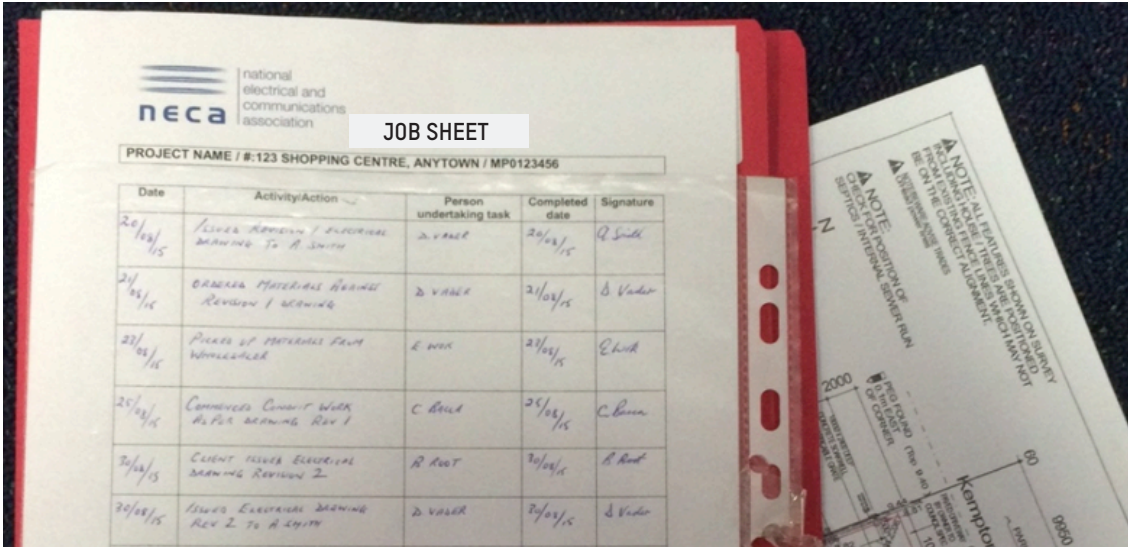 national
electrical and
communications
association
neca
JOB SHEET
PROJECT NAME / #:123 SHOPPING CENTRE, ANYTOWN / MP0123456
Date Activity/Action Person undertaking task Completed date Signature
20/08/15 ISSUED REVISION 1 ELECTRICAL
DRAWING TO A SMITH D. VADER 20/08/15 A Smith
21/08/15 ORDERED MATERIALS AGAINST
REVISION 1 DRAWING D. VADER 21/08/15 D. Vader
22/08/15 PICKED UP MATERIALS FROM
WHOLESALER E WOK 22/08/15 E Wok
25/08/15 COMMENCED CONDUIT WORK
AS PER DRAWING REV 1 C BACCA 25/08/15 C Bacca
30/08/15 CLIENT ISSUED ELECTRICAL
DRAWING REVISION 2 R ROOT 30/08/15 R Root
30/08/15 ISSUED ELECTRICAL DRAWING
REV 2 TO A SMITH D. VADER 30/08/15 D Vader
NOTE: ALL FEATURES SHOWN ON SURVEY
INCLUDING HOUSE / TREES ARE POSITIONED
FROM EXISTING FENCE LINES WHICH MAY NOT
BE ON THE CORRECT ALIGNMENT.
NOTE:
CHECK FOR POSITION OF
SEPTICS / INTERNAL SEWER RUN
N
2000
PEG FOUND
0.1m EAST
OF CORNER
60
Kempto
9950